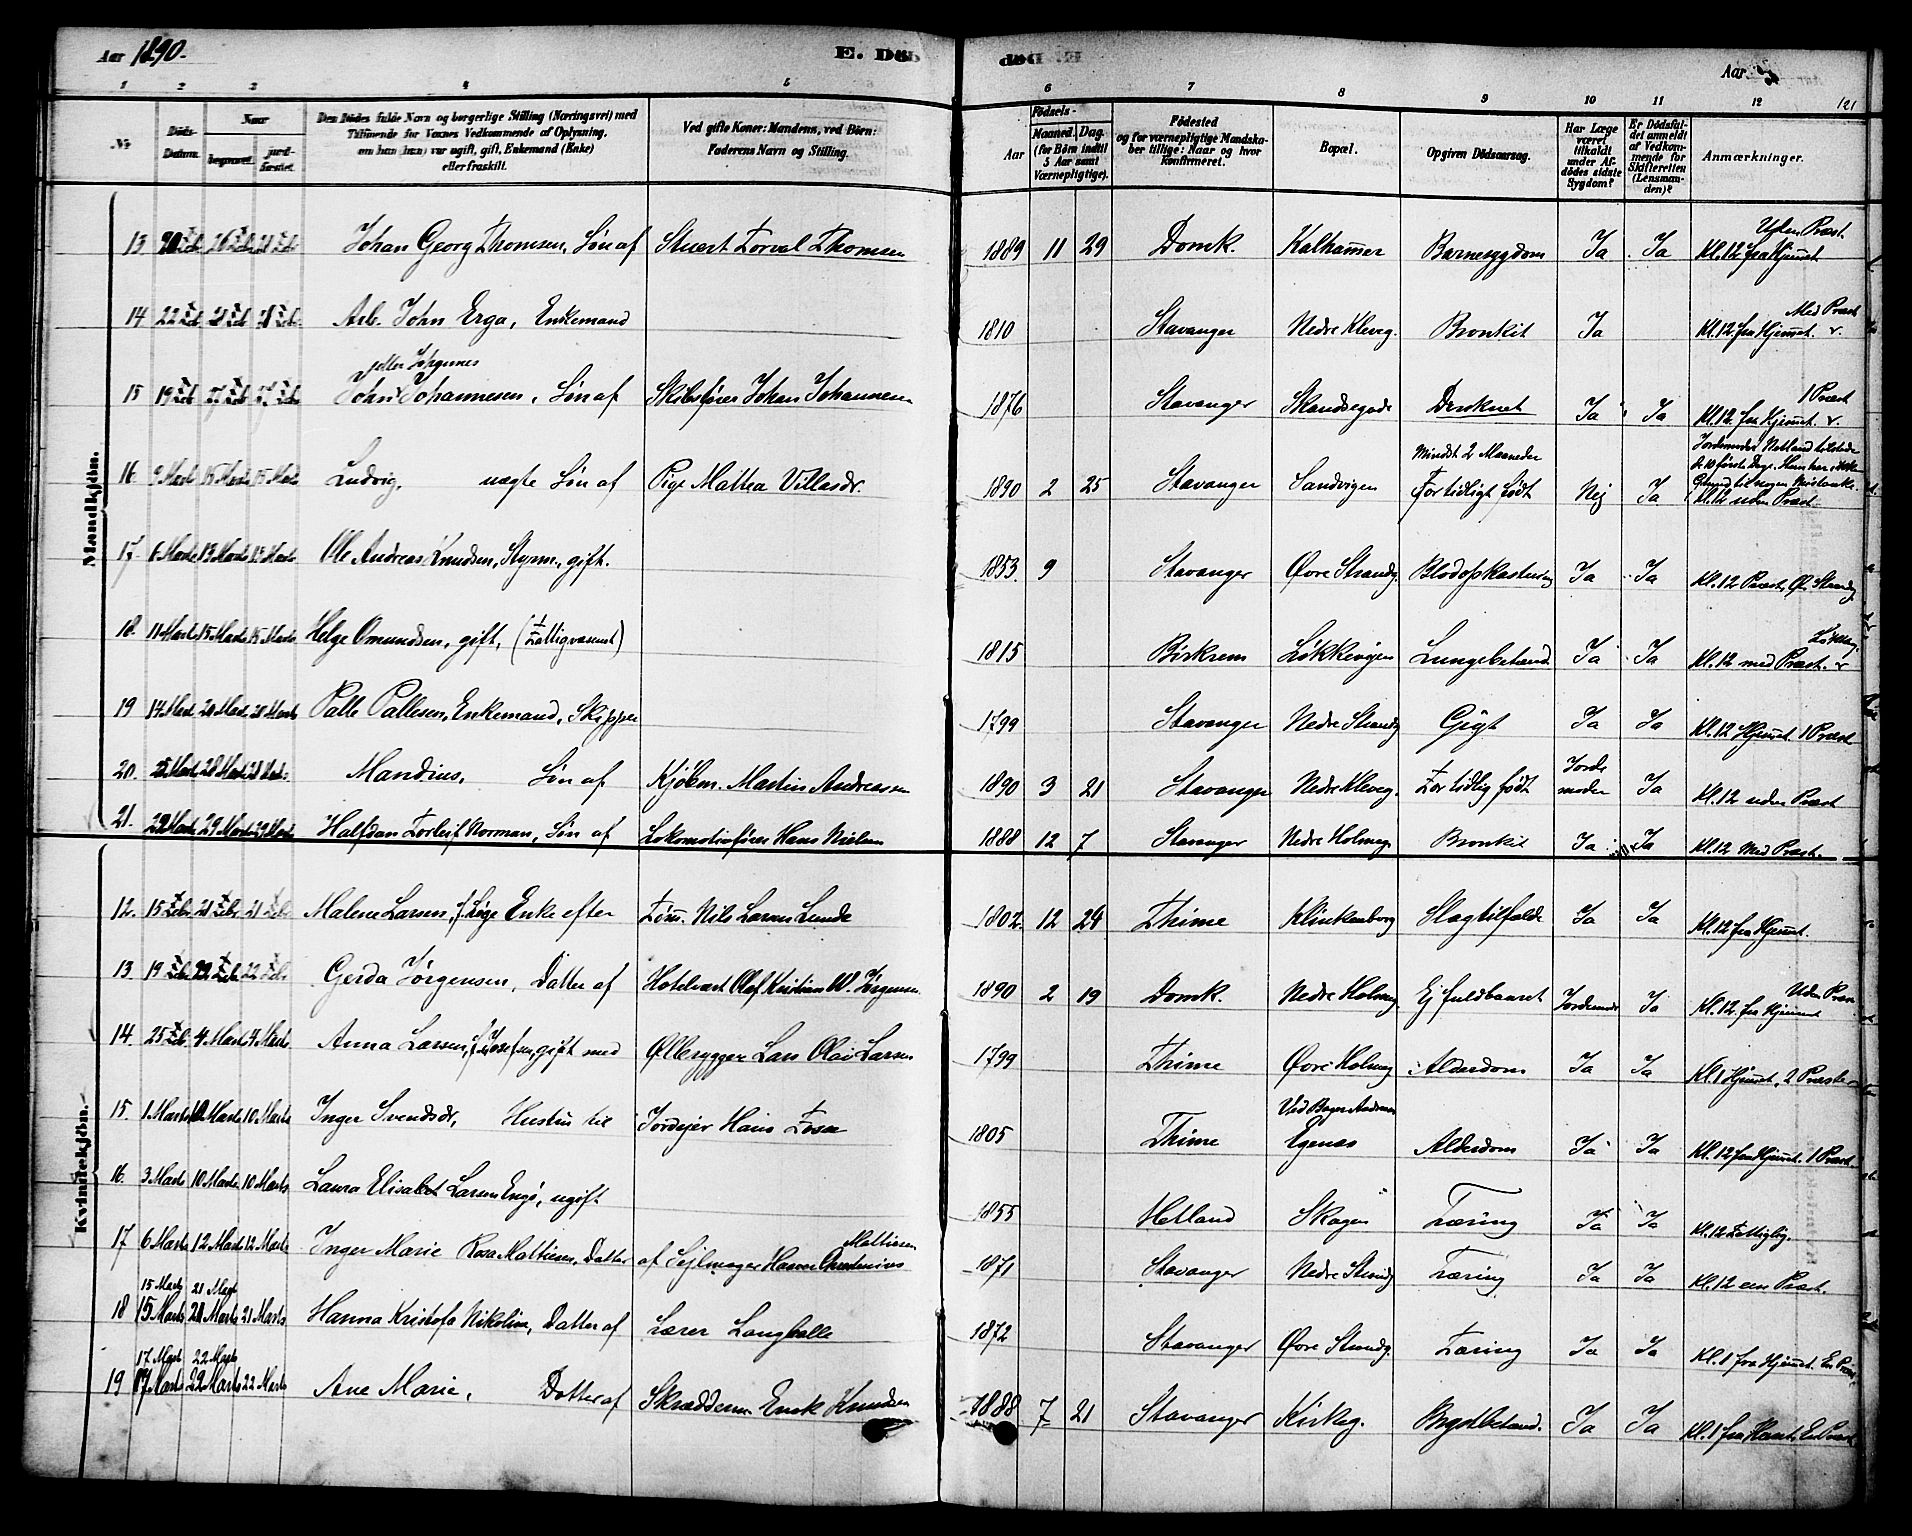 Aar 1890.
E. Død
Aar
121
1 2 3 4 5 6 7 8 9 10 11 12
No
Døds-Datum.
Naar
begravet.
jordfæstet.
Den Dødes fulde Navn og borgerlige Stilling (Næringsvei) med
Tilføiende for Voxnes Vedkommende af Oplysning,
om han (hun) var ugift, gift, Enkemand (Enke)
eller fraskilt.
Ved gifte Koner: Mandens, ved Børn:
Faderens Navn og Stilling.
Fødsels-
Aar
Maaned. Dag.
(for Børn indtil
5 Aar samt
Værnepligtige).
Fødested
og for værnepligtige Mandskaber
tillige: Naar og hvor
konfirmeret.
Bopæl.
Opgiven Dødsaarsag.
Har Læge
været
tilkaldt
under Afdødes
sidste
Sygdom?
Er Dødsfaldet
anmeldt
af Vedkommende
for
Skifteretten
(Lensmanden)?
Anmærkninger.
Mandkjøn.
13 20 Feb 26 Feb 26 Feb Johan Georg Thomsen, Søn af Stuert Torval Thomsen 1889 11 29 Domk. Kalhammer Barnesygdom Ja Ja Uden Præst Kl. 12 fra Hjemmet
14 22 Feb Arb. John Erga, Enkemand 1810 Stavanger Nedre Kleveg. Bronkit Ja Med Præst Kl. 12 fra Hjemmet
15 19 Feb 27 Feb 27 Feb John Johannesen, Søn af Skibsfører Johan Johannesen 1876 Stavanger Skandsegade Druknet Ja Ja 1 Præst Kl. 12 fra Hjemmet
16 9 Marts 15 Marts 15 Marts Ludvig, uægte Søn af Pige Mattea Villasdr. 1890 2 25 Stavanger Sandvigen Mindst 2 Maaneder For tidligt født Nej Ja Kl. 12 uden Præst
17 6 Marts 13 Marts 13 Marts Ole Andreas Knudsen, Styrm., gift. 1853 9 Stavanger Øvre Strandg. Blodopkastning Ja Ja Kl. 12 Præst, Ø. Strandg
18. 11 Marts 15 Marts 15 Marts Helge Omundsen, gift, (Fattigvæsenet) 1815 Birkrem Løkkevigen Lungebetænd. Ja Ja Kl. 12 med Præst.
19 14 Marts 20 Marts 20 Marts Palle Pallesen, Enkemand, Skipper 1799 Stavanger Nedre Strandg Gigt Ja Ja Kl. 12 Hjemmet 1 Præst
20. 25 Marts 28 Marts 28 Marts Mandius, Søn af Kjøbm. Martin Andreasen 1890 3 21 Stavanger Nedre Kleveg. For tidlig født Jordemoder Ja Kl. 12 uden Præst
21. 22 Marts 29 Marts 29 Marts Halfdan Torleif Norman, Søn af Lokomotivfører Hans Nielsen 1888 12 7 Stavanger Nedre Holmeg. Bronkit Ja Ja Kl. 12 Med Præst.
Kvindekjøn.
12. 15 Feb. 21 Feb. 21 Feb. Malene Larsen, Enke efter Tøm. Nils Larsen Lunde 1802 12 24 Thime Klinkenborg Slagtilfælde Ja Ja Kl. 12 fra Hjemmet.
13 19 Feb. 22 Feb. 22 Feb. Gerda Jørgensen, Datter af Hotelvært Olaf Kristian W. Jørgensen 1890 2 19 Domk. Nedre Holmeg Ej fuldbaaret Jordemoder Ja Uden Præst Kl. 12 fra Hjemmet
14. 25 Feb. 4 Marts 4 Marts Anna Larsen, f. Josefsen, gift med Ølbrygger Lars Olai Larsen 1799 Thime Øvre Holmeg Alderdom Ja Ja Kl. 1 Hjemmet, 2 Præster
15. 1 Marts 10 Marts 10 Marts Inger Svendsdr, Hustru til Jordejer Hans Fosse 1805 Thime Ved Bager Andersen Egenæs Alderdom Ja Ja Kl. 12 fra Hjemmet. 1 Præst
16 3 Marts 10 Marts 10 Marts Laura Elisabet Larsen Engø, ugift 1855 Hetland Skagen Tæring Ja Ja Kl. 12 Fattiglig.
17 6 Marts 12 Marts 12 Marts Inger Marie Rosa Mattiesen, Datter af Sejlmager Hanse Christenius Mattiesen 1871 Stavanger Nedre Strandg Tæring Ja Ja Kl. 12 een Præst.
15 Marts 21 Marts
18 15 Marts 21 Marts 21 Marts Hanna Kristofa Nikoline, Datter af Lærer Langballe 1872 Stavanger Øvre Strandg. Tæring Ja Ja Kl. 1 fra Hjemmet. En Præst
17 Marts 22 Marts
19 17 Marts 22 Marts 22 Marts Ane Marie, Datter af Skrædderm. Enok Knudsen 1888 7 21 Stavanger Kirkeg. Brystbetænd. Ja Ja Kl. 1 fra Hjemmet, En Præst